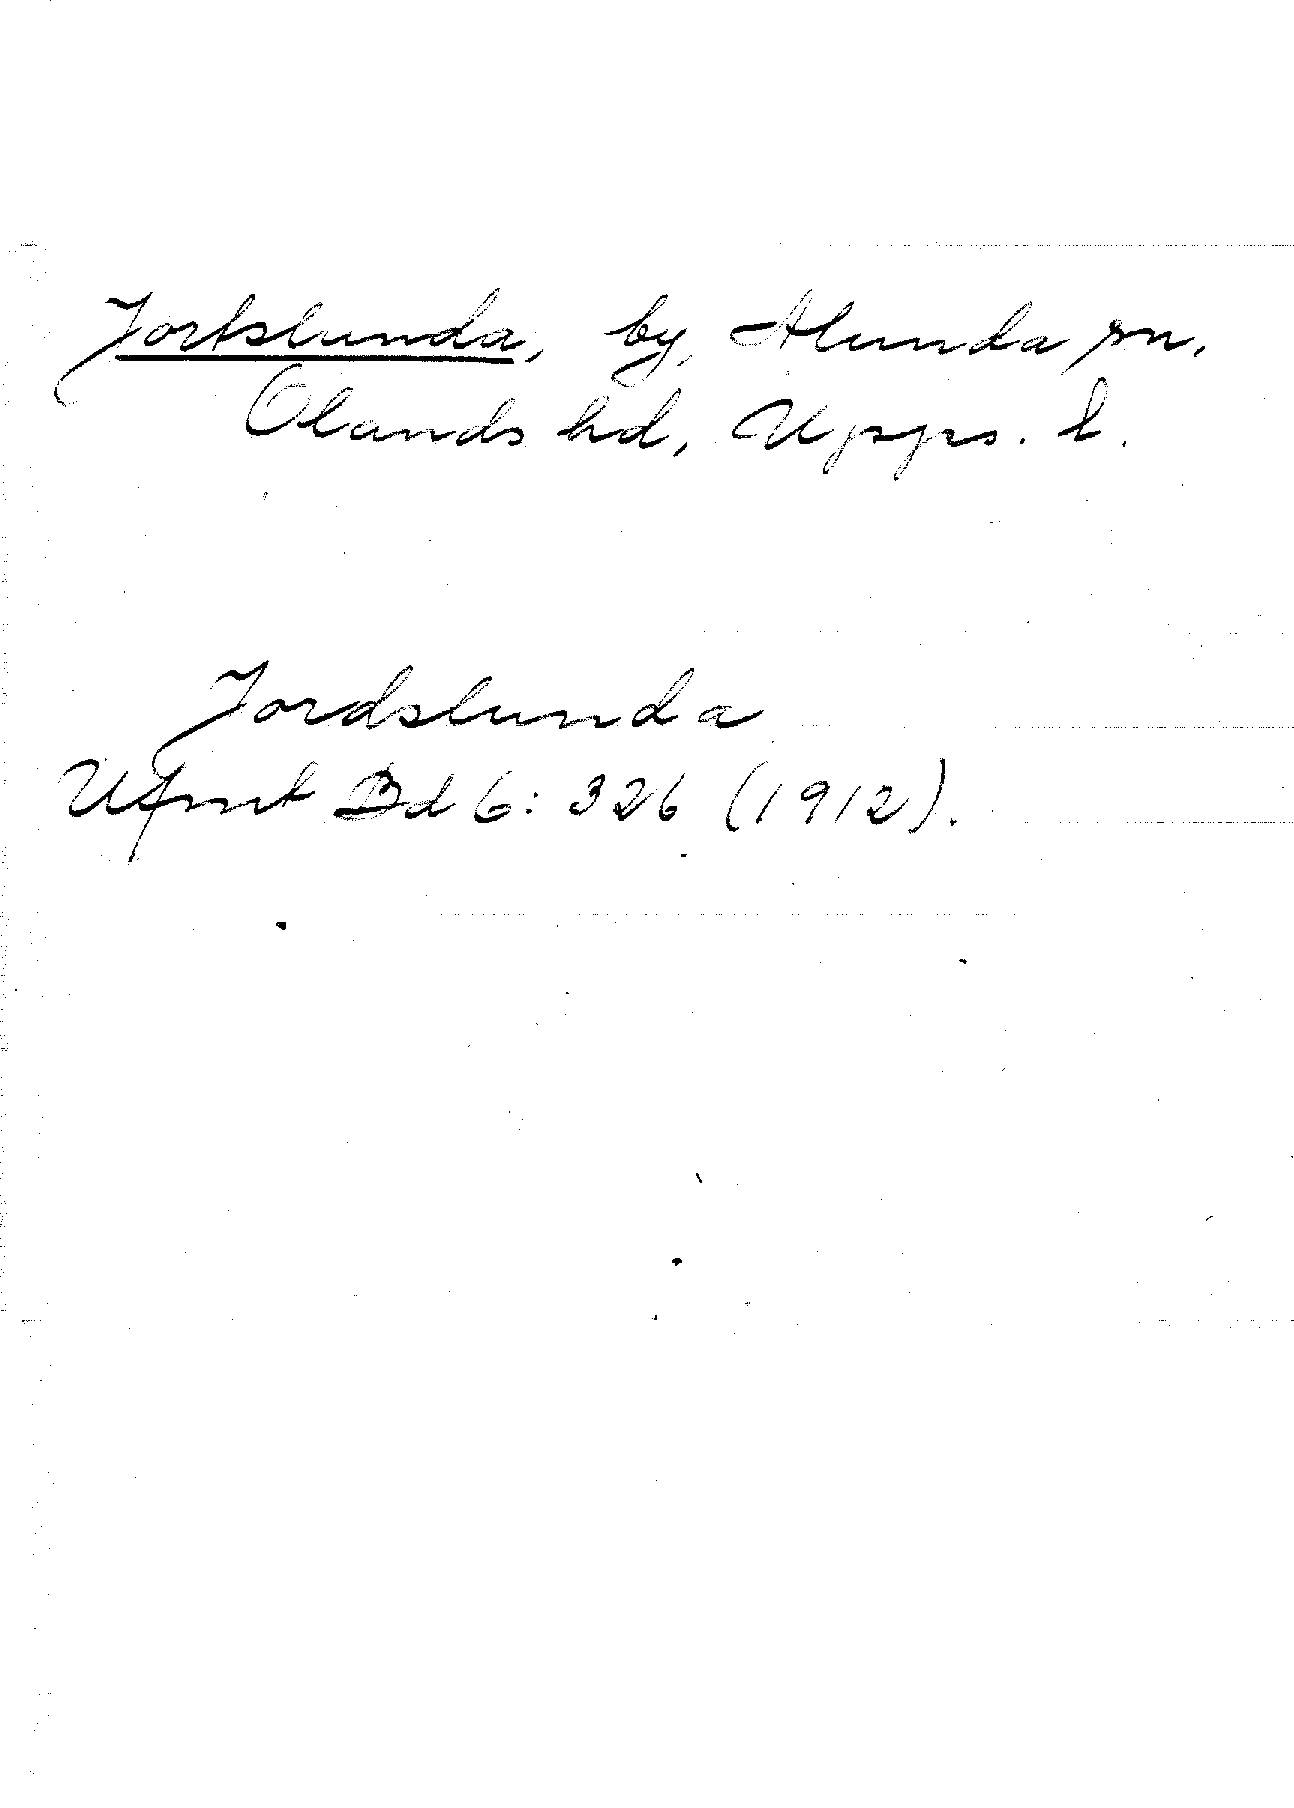 Jortslunda, by, Alunda sn.
Olands hd, Upps. l.
Jordslunda
Ufmt Bd 6: 326 (1912).